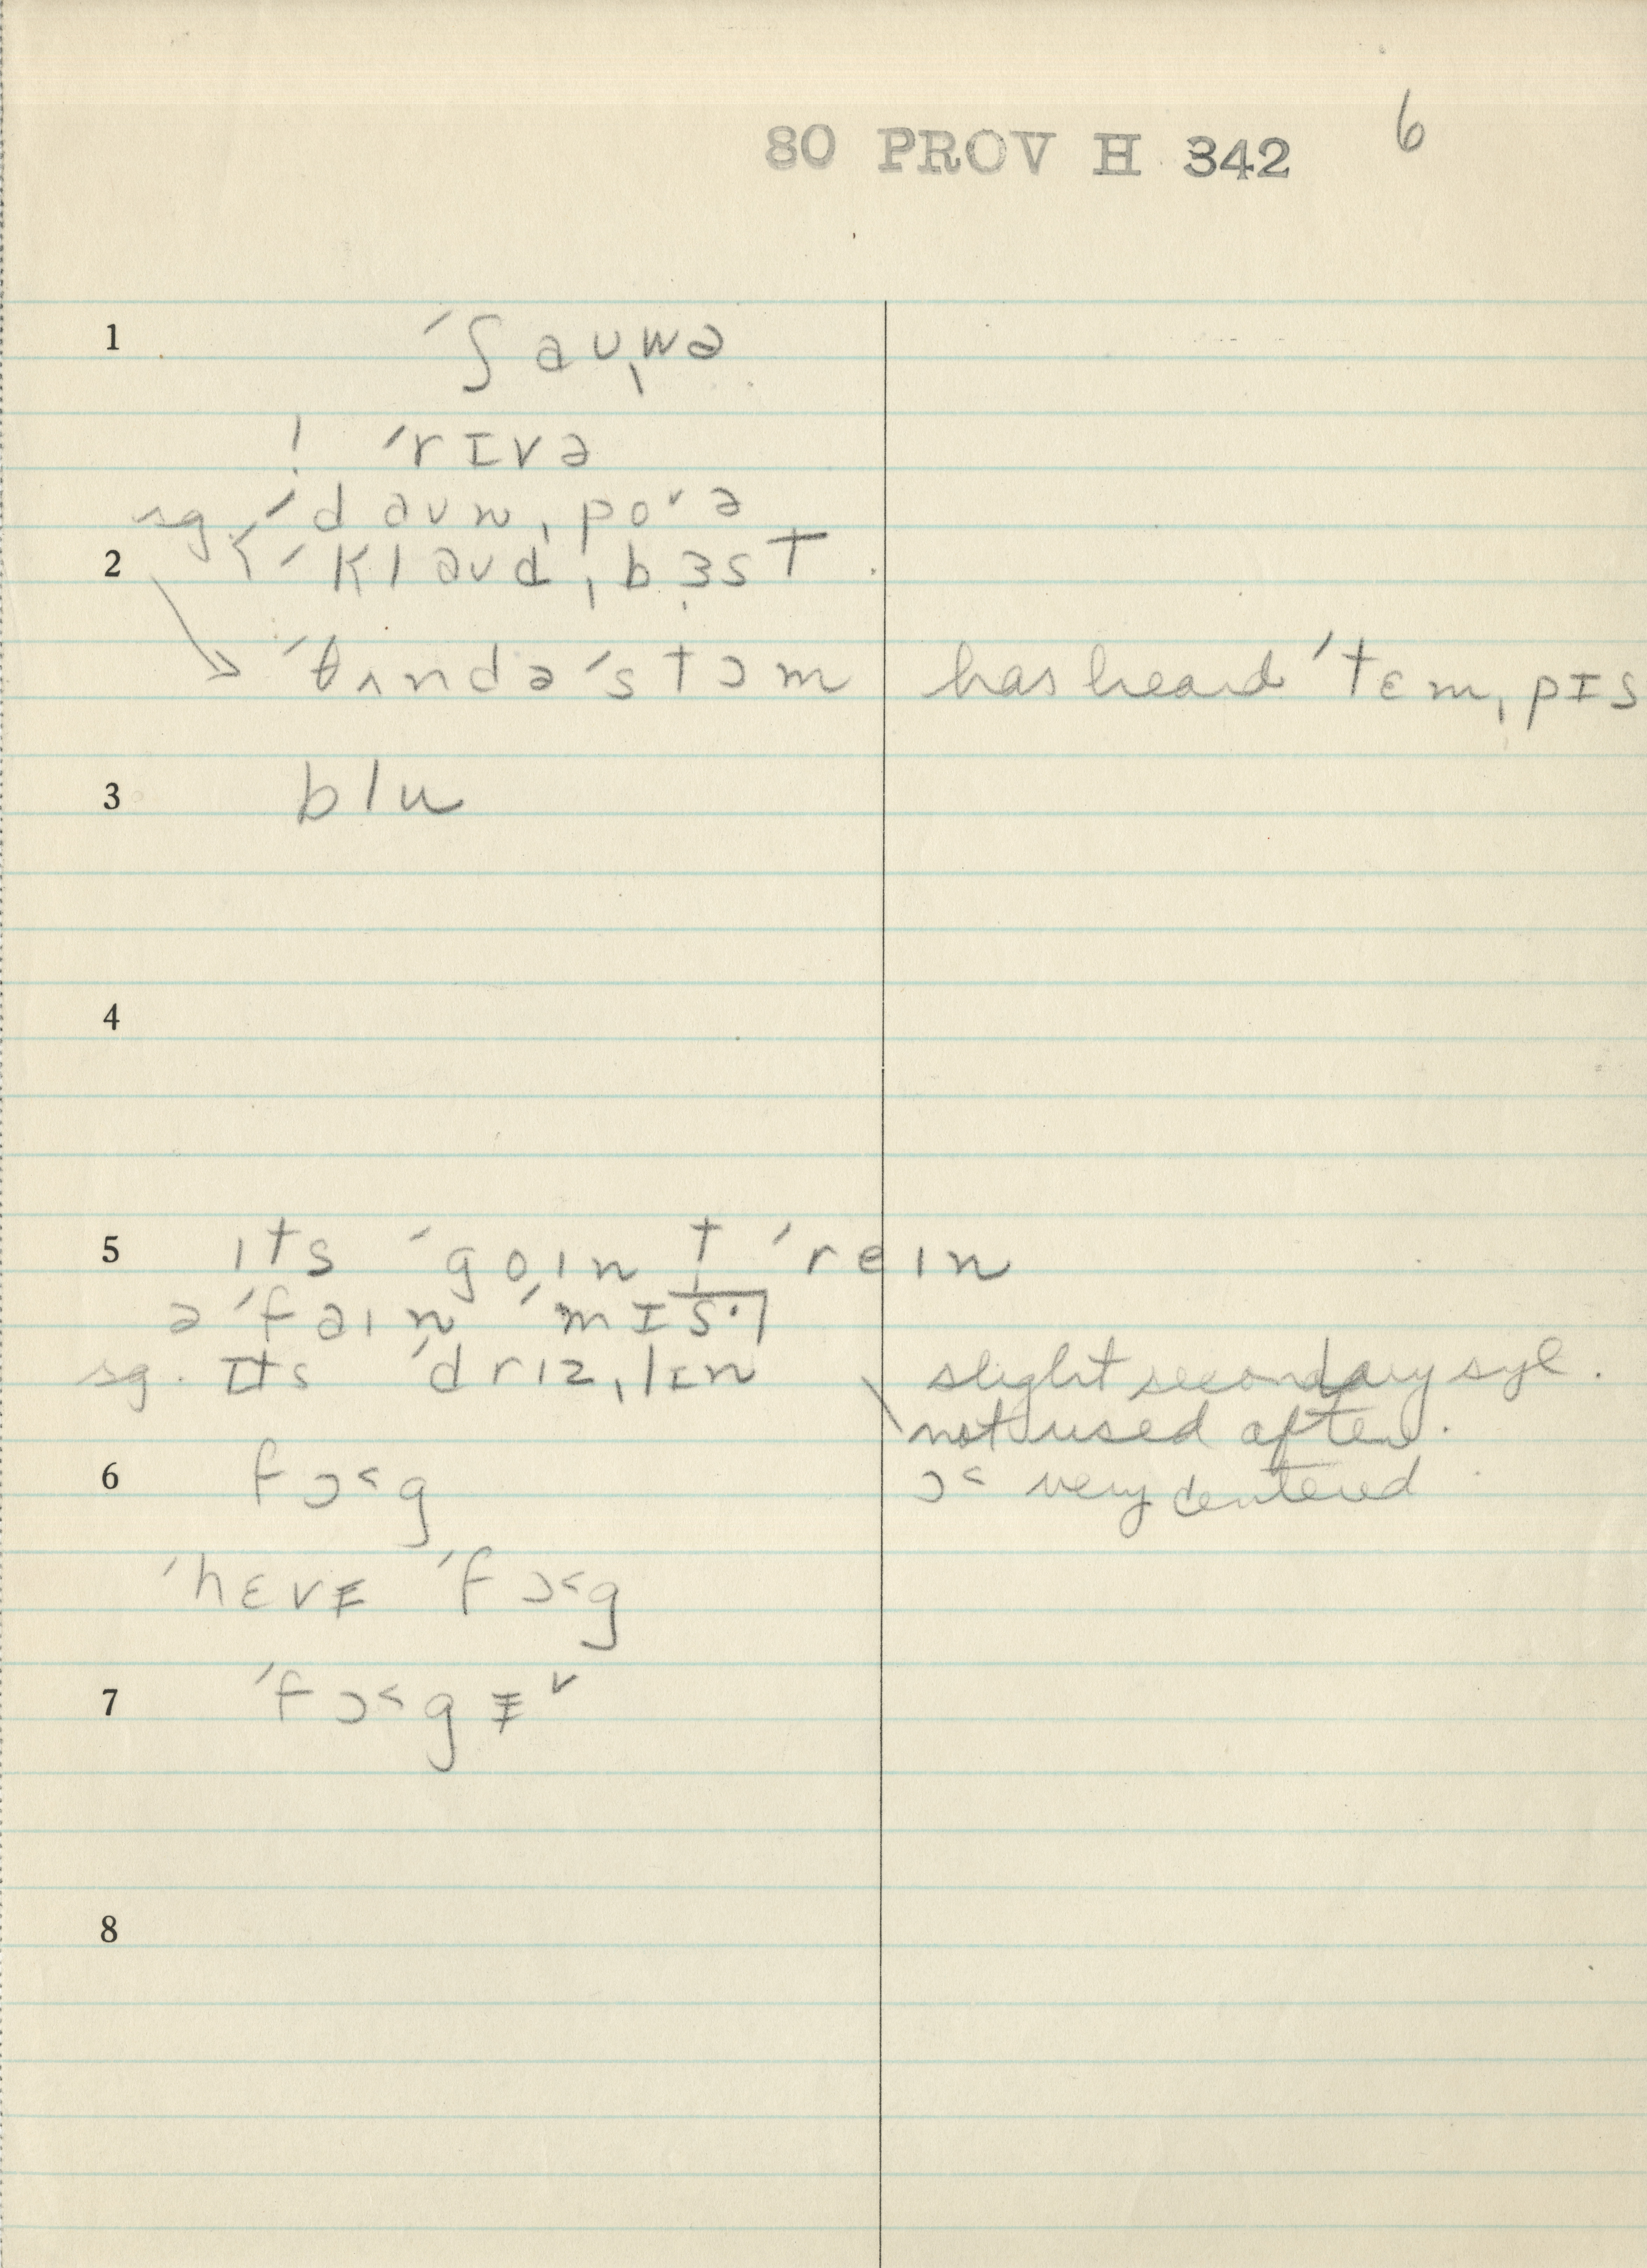 6
80 PROV H 342
1 ˈʃauˌwə
! ˈrɪvə
sg. ˈdaunˌpo˅ə
2 ˈklaudˌbɜst
ˈθʌndəˈstɔm has heard ˈtɛmˌpɪs
3 blu
4
5 ɪts ˈgoɪn t ˈreɪn
ə ˈfaɪn ˈmɪs·
sg. ɪts ˈdrɪzˌlɪn slight secondary syl.
not used often.
6 fɔ˂g ɔ˂ very centered
ˈhɛvɪ̵ ˈfɔ˂g
7 ˈfɔ˂gɪ̵˅
8